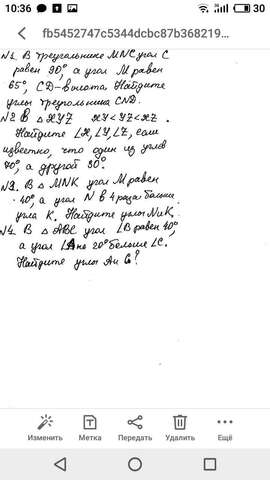 10:36
30
fb5452747c5344dcbc87b368219...
N1. В треугольнике MNC угол C
равен 90°, а угол M равен
65°, CD-высота. Найдите
углы треугольника CND.
N2 В △ XYZ XY < YZ < XZ.
Найдите ∠X, ∠Y, ∠Z, если
известно, что один из углов
40°, а другой 30°.
N3. В △ MNK угол M равен
40°, а угол N в 4 раза больше
угла K. Найдите углы N и K.
N4. В △ ABC угол ∠B равен 40°,
а угол ∠A на 20° больше ∠C.
Найдите углы A и C?
Изменить Метка Передать Удалить Ещё